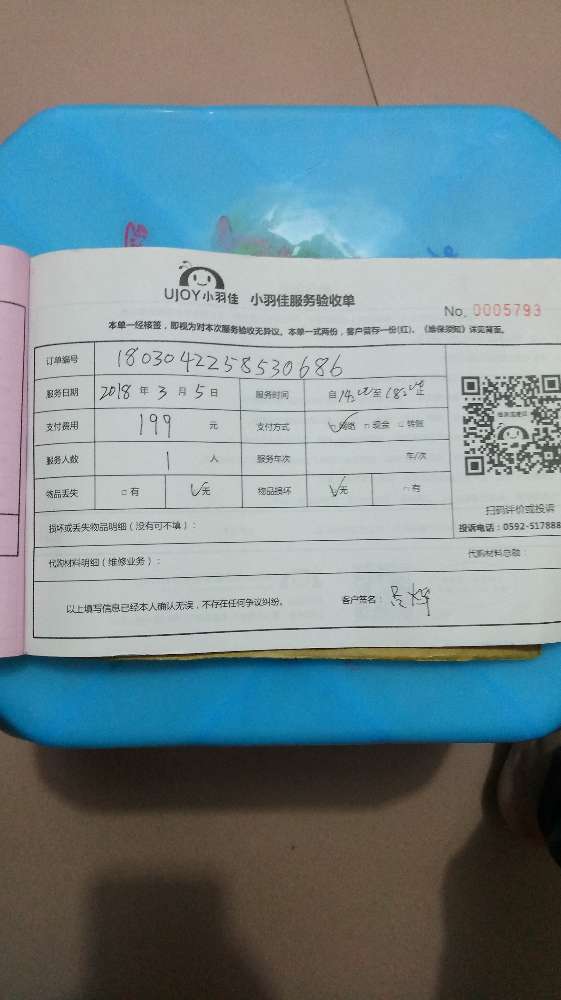 UJOY小羽佳 小羽佳服务验收单
No. 0005793
本单一经核签，即视为对本次服务验收无异议。本单一式两份，客户留存一份(红)。《维保须知》详见背面。
订单编号 1803042258530686
服务日期 2018 年 3 月 5 日 服务时间 自 14:00 至 18:00 止
支付费用 199 元 支付方式 ☑网络 □现金 □转账
服务人数 1 人 服务车次 车/次
物品丢失 □有 ☑无 物品损坏 ☑无 □有
扫码评价或投诉
投诉电话：0592-517888
损坏或丢失物品明细（没有可不填）：
代购材料明细（维修业务）： 代购材料总额：
以上填写信息已经本人确认无误，不存在任何争议纠纷。 客户签名：